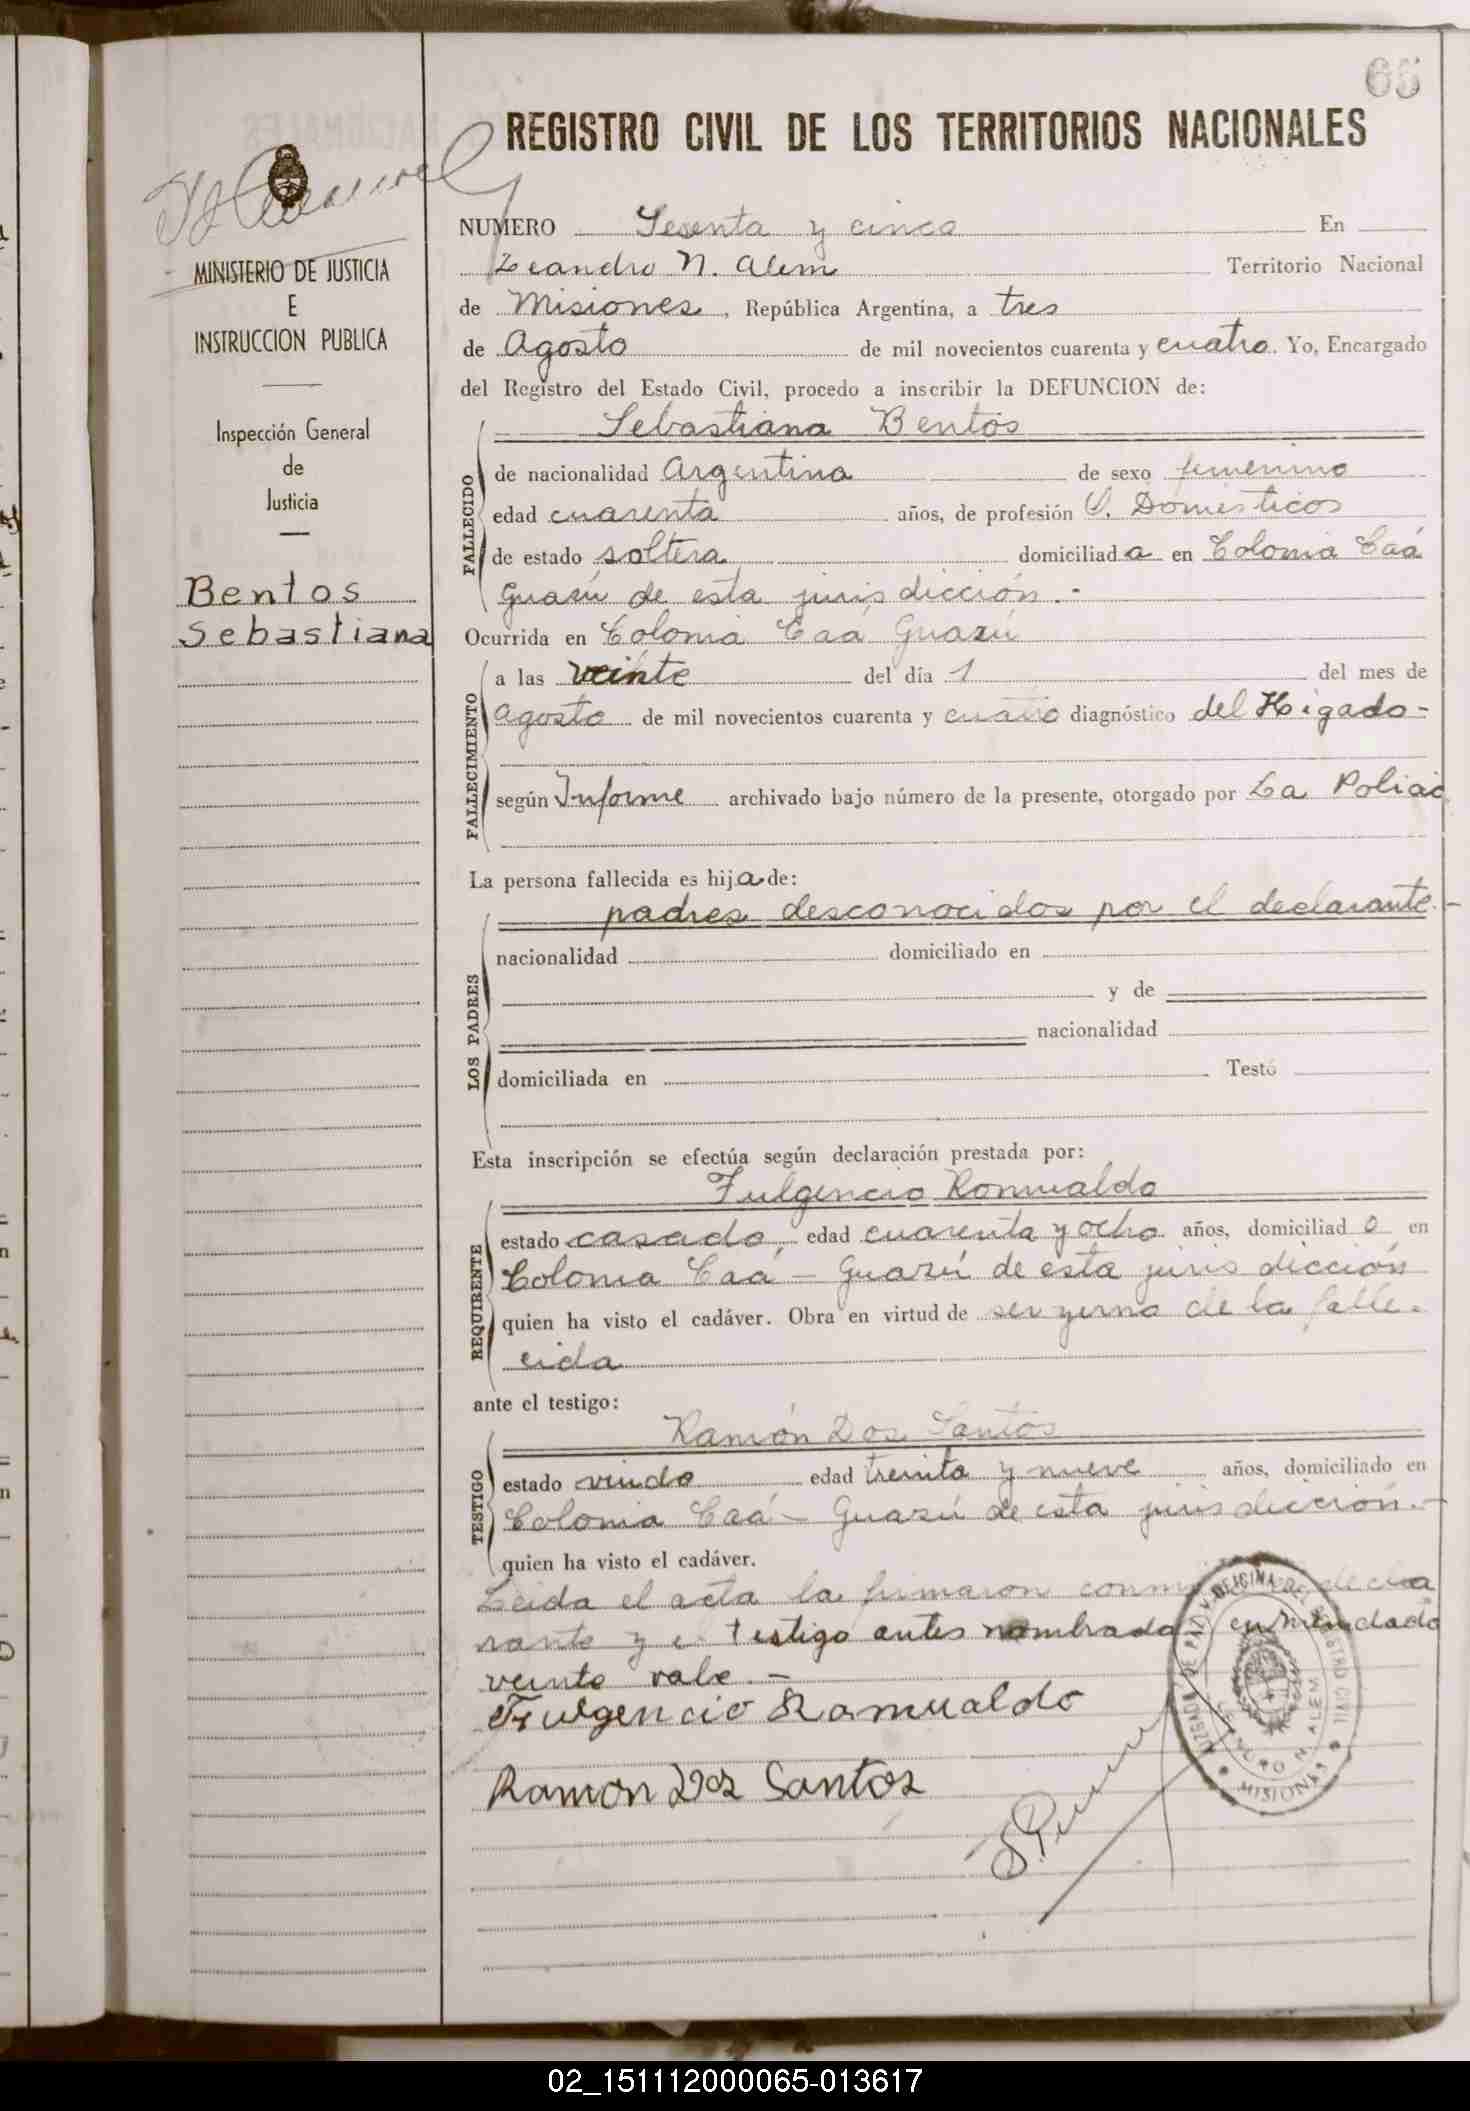 65
REGISTRO CIVIL DE LOS TERRITORIOS NACIONALES
MINISTERIO DE JUSTICIA
E
INSTRUCCION PUBLICA
Inspección General
de
Justicia
Bentos
Sebastiana
NUMERO Sesenta y cinco En
Leandro N. Alem Territorio Nacional
de Misiones, República Argentina, a tres
de Agosto de mil novecientos cuarenta y cuatro. Yo, Encargado
del Registro del Estado Civil, procedo a inscribir la DEFUNCION de:
Sebastiana Bentos
FALLECIDO
de nacionalidad Argentina de sexo femenino
edad cuarenta años, de profesión S. Domésticos
de estado soltera domiciliada en Colonia Caá
Guazú de esta jurisdicción.-
Ocurrida en Colonia Caá Guazú
FALLECIMIENTO
a las veinte del día 1 del mes de
Agosto de mil novecientos cuarenta y cuatro diagnóstico del Higado-
según Informe archivado bajo número de la presente, otorgado por La Policia
La persona fallecida es hija de:
padres desconocidos por el declarante.-
LOS PADRES
nacionalidad domiciliado en
y de
nacionalidad
domiciliada en Testó
Esta inscripción se efectúa según declaración prestada por:
Fulgencio Romualdo
REQUIRENTE
estado casado, edad cuarenta y ocho años, domiciliado en
Colonia Caá-Guazú de esta jurisdicción
quien ha visto el cadáver. Obra en virtud de ser yerno de la falle-
cida
ante el testigo:
Ramón Dos Santos
TESTIGO
estado viudo edad treinta y nueve años, domiciliado en
Colonia Caá-Guazú de esta jurisdicción.-
quien ha visto el cadáver.
Leida el acta la firmaron decla
rante y el testigo antes nombrado enmendado
veinte vale.-
Fulgencio Romualdo
Ramon Dos Santos
OFICINA DEL REGISTRO CIVIL
LEANDRO N. ALEM
MISIONES
02_151112000065-013617